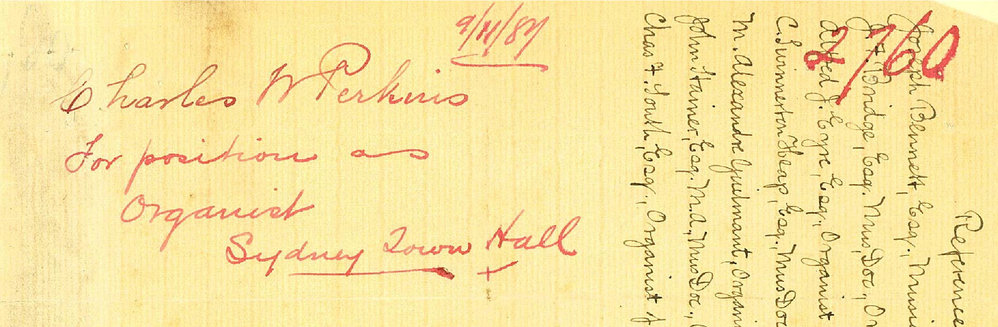 9/11/87
Charles W Perkins
For position as
Organist
Sydney Town Hall
2760
Reference
Joseph Bennett, Esq., Musi
J. F. Bridge, Esq. Mus. Doc., Or
Alfred J. Eyre, Esq., Organist
C. Swinnerton Heap, Esq., Mus Doc
M. Alexandre Guilmant, Organi
John Stainer, Esq. M.A., Mus Doc., (
Chas F. South, Esq., Organist of